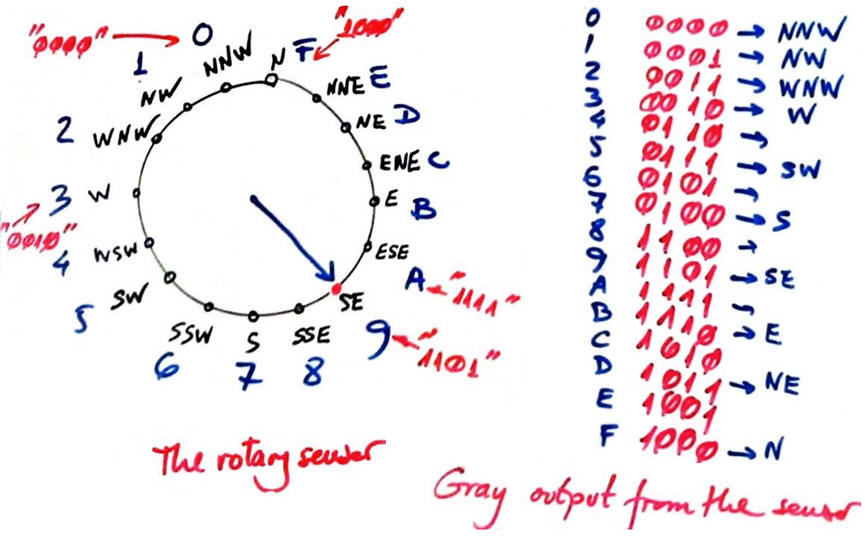 "0000" → 0
"1000"
1
NNW
N F
NW
NNE E
2 WNW
NE D
ENE C
3 W
E B
"0010"
4 WSW
ESE
5 SW
SE
A ← "1111"
6 SSW
7 S
8 SSE
9 ← "1101"
The rotary sensor
0 0000 → NNW
1 0001 → NW
2 0011 → WNW
3 0010 → W
4 0110 →
5 0111 → SW
6 0101 →
7 0100 → S
8 1100 →
9 1101 → SE
A 1111 →
B 1110 → E
C 1010
D 1011 → NE
E 1001
F 1000 → N
Gray output from the sensor